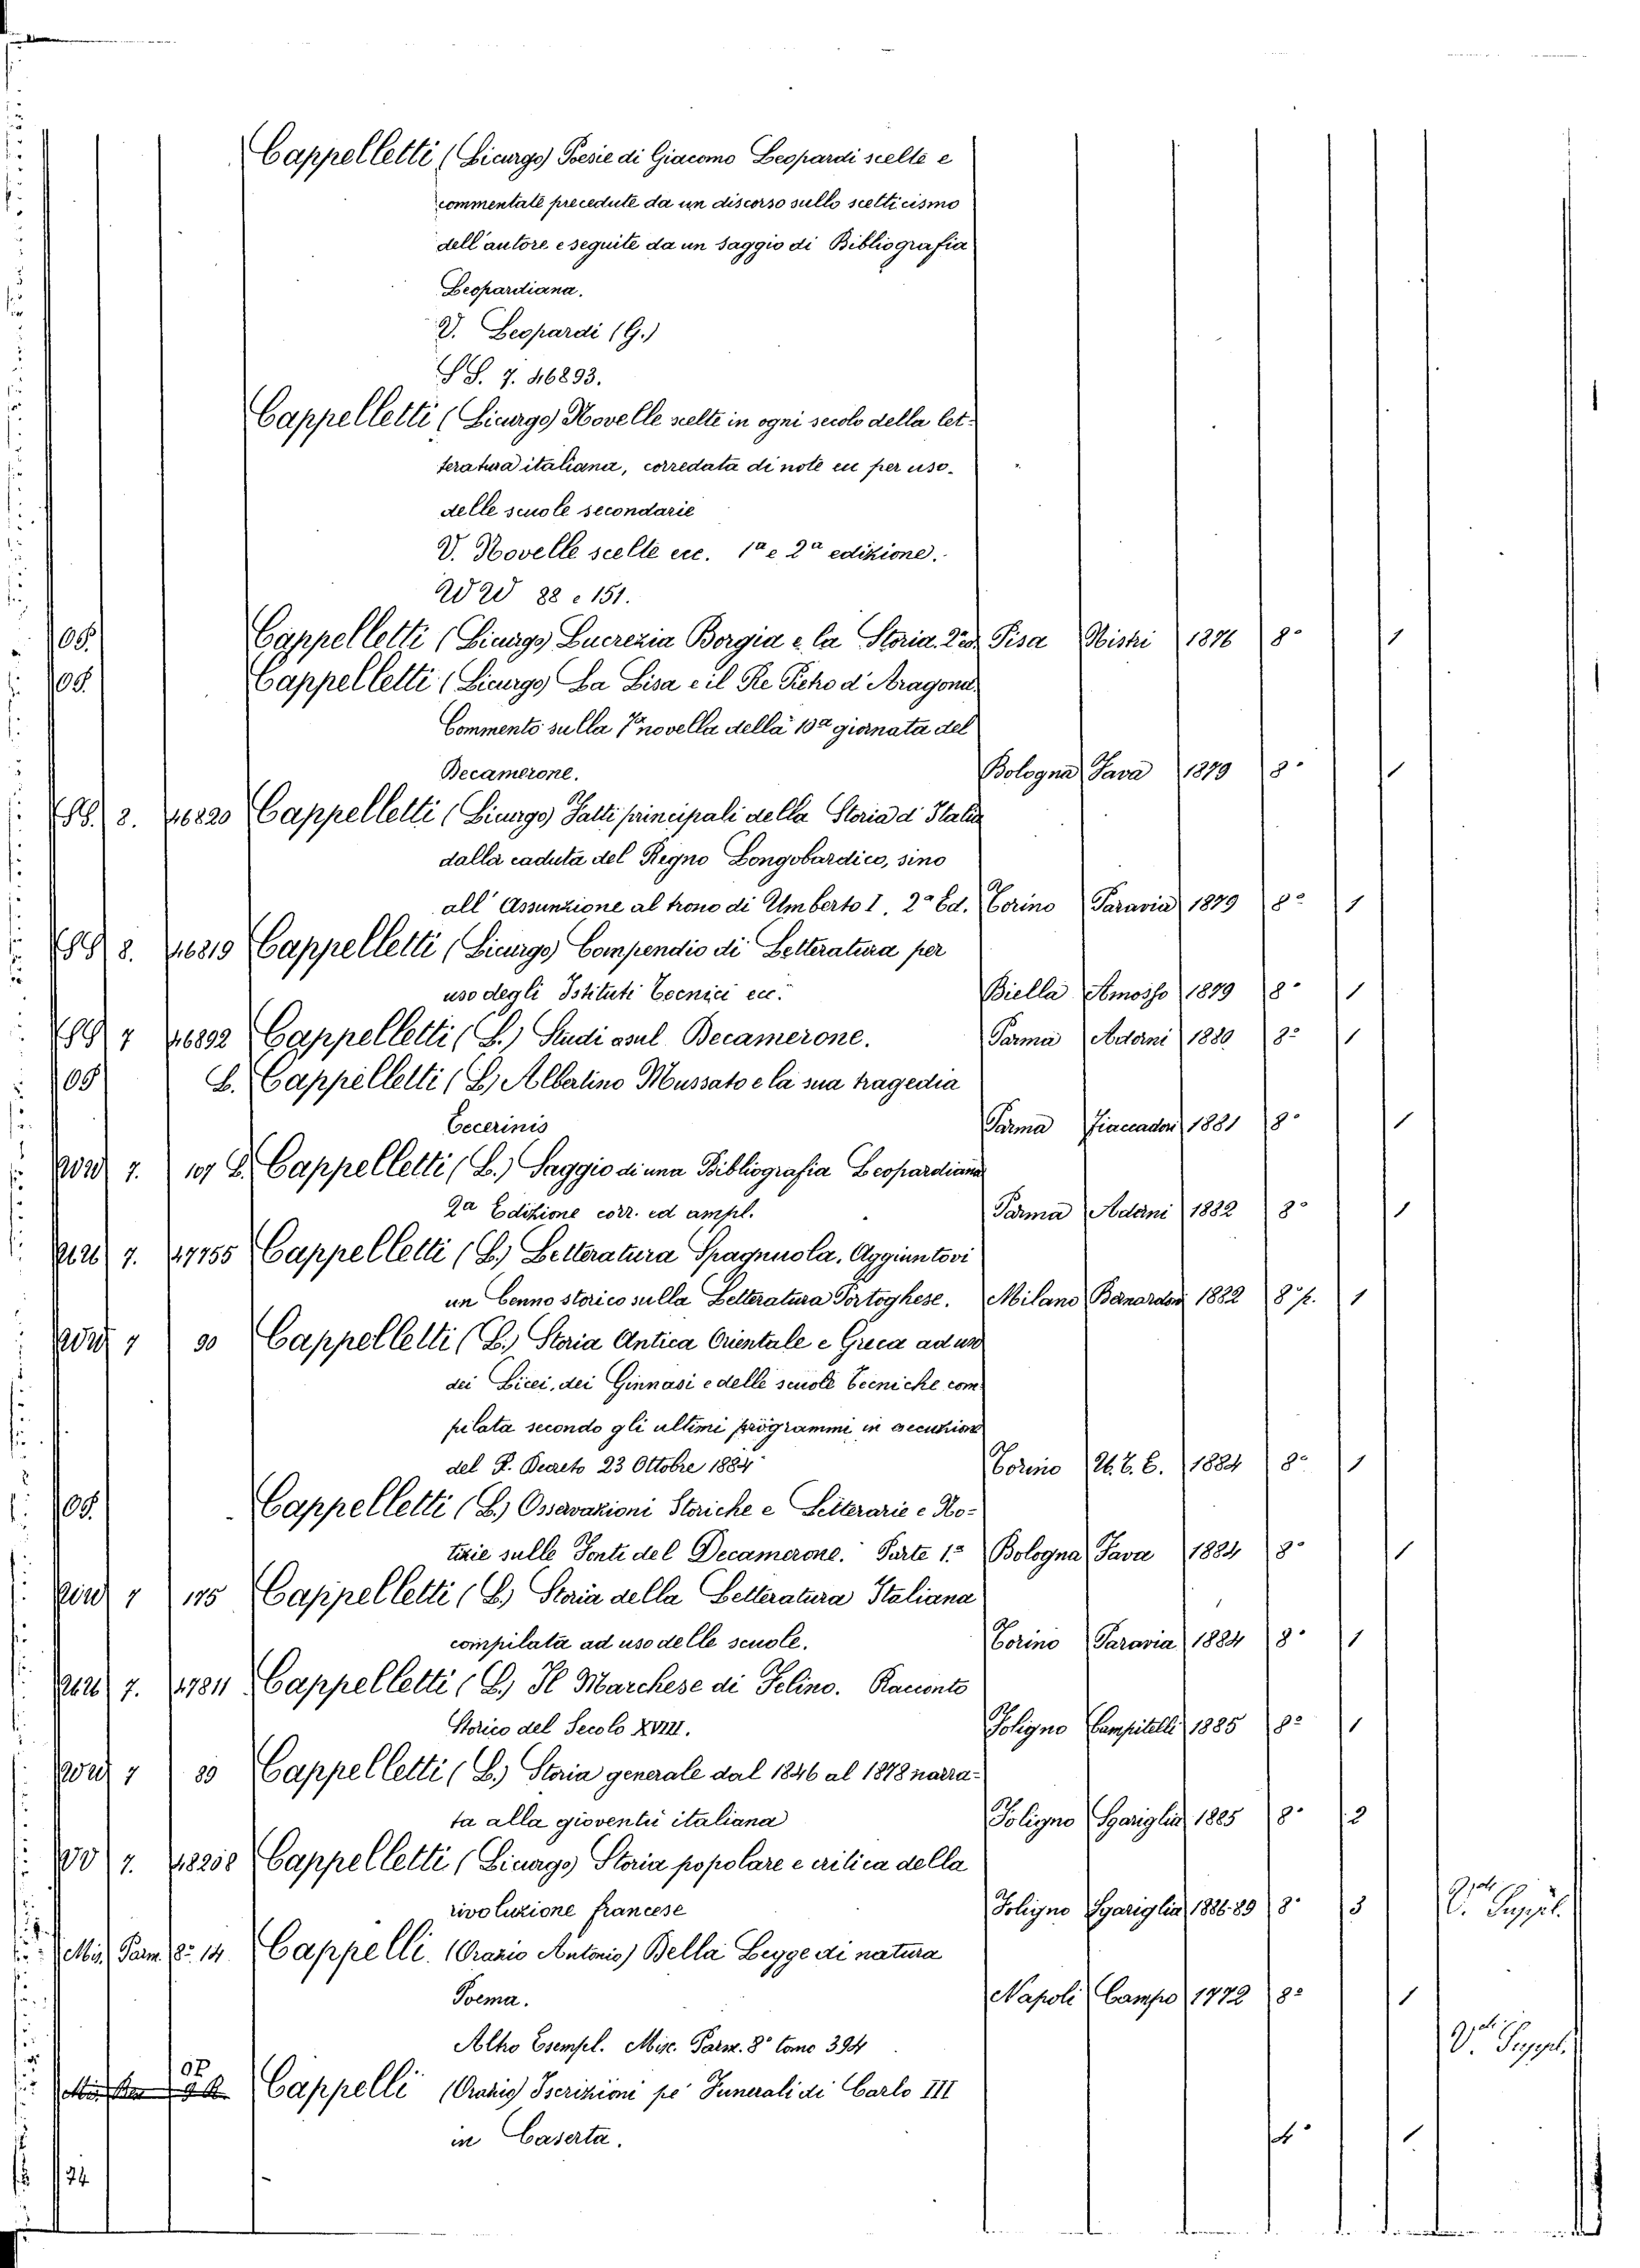 Cappelletti (Licurgo) Poesie di Giacomo Leopardi scelte e
commentate precedute da un discorso sullo scetticismo
dell'autore e seguite da un saggio di Bibliografia
Leopardiana.
V. Leopardi (G.)
SS. 7. 46893.
Cappelletti (Licurgo) Novelle scelte in ogni secolo della let-
teratura italiana, corredata di note ecc per uso
delle scuole secondarie
V. Novelle scelte ecc. 1a e 2a edizione.
88 e 151.
Cappelletti (Licurgo) Lucrezia Borgia e la Storia. Pisa Nistri 1876 8° 1
Cappelletti (Licurgo) La Lisa e il Re Pietro d'Aragona
Commento sulla 7a novella della 10a giornata del
Decamerone. Bologna Fava 1879 8° 1
SS. 8. 46820 Cappelletti (Licurgo) Fatti principali della Storia d'Italia
dalla caduta del Regno Longobardico, sino
all'Assunzione al trono di Umberto I. 2a Ed. Torino Paravia 1879 8° 1
SS 8. 46819 Cappelletti (Licurgo) Compendio di Letteratura per
uso degli Istituti Tecnici ecc. Biella Amosso 1879 8° 1
SS 7 46892 Cappelletti (L.) Studi sul Decamerone. Parma Adorni 1880 8° 1
L. Cappelletti (L.) Albertino Mussato e la sua tragedia
Eccerinis Parma Fiaccadori 1881 8° 1
7. 107 L. Cappelletti (L.) Saggio di una Bibliografia Leopardiana
2a Edizione corr. ed ampl. Parma Adorni 1882 8° 1
7. 47755 Cappelletti (L.) Letteratura Spagnuola, Aggiuntovi
un Cenno storico sulla Letteratura Portoghese. Milano Bernardoni 1882 8° p. 1
7 90 Cappelletti (L.) Storia Antica Orientale e Greca ad uso
dei Licei, dei Ginnasi e delle scuole tecniche com
pilata secondo gli ultimi programmi in esecuzione
del R. Decreto 23 Ottobre 1884 Torino U.T.E. 1884 8° 1
Cappelletti (L.) Osservazioni Storiche e Letterarie e No-
tizie sulle Fonti del Decamerone. Parte 1a Bologna Fava 1884 8° 1
7 175 Cappelletti (L.) Storia della Letteratura Italiana
compilata ad uso delle scuole. Torino Paravia 1884 8° 1
7. 47811 Cappelletti (L.) Il Marchese di Felino. Racconto
Storico del Secolo XVIII. Foligno Campitelli 1885 8° 1
7 89 Cappelletti (L.) Storia generale dal 1846 al 1878 narra-
ta alla gioventù italiana Foligno Sgariglia 1885 8° 2
7. 48208 Cappelletti (Licurgo) Storia popolare e critica della
rivoluzione francese Foligno Sgariglia 1886-89 8° 3 V. Suppl.
Mis. Parm. 8° 14. Cappelli. (Orazio Antonio) Bella Legge di natura
Poema. Napoli Campo 1772 8° 1
Altro Esempl. Misc. Parm. 8° tomo 394 V. Suppl.
Cappelli (Orazio) Iscrizioni pe' Funerali di Carlo III
in Caserta. 4° 1